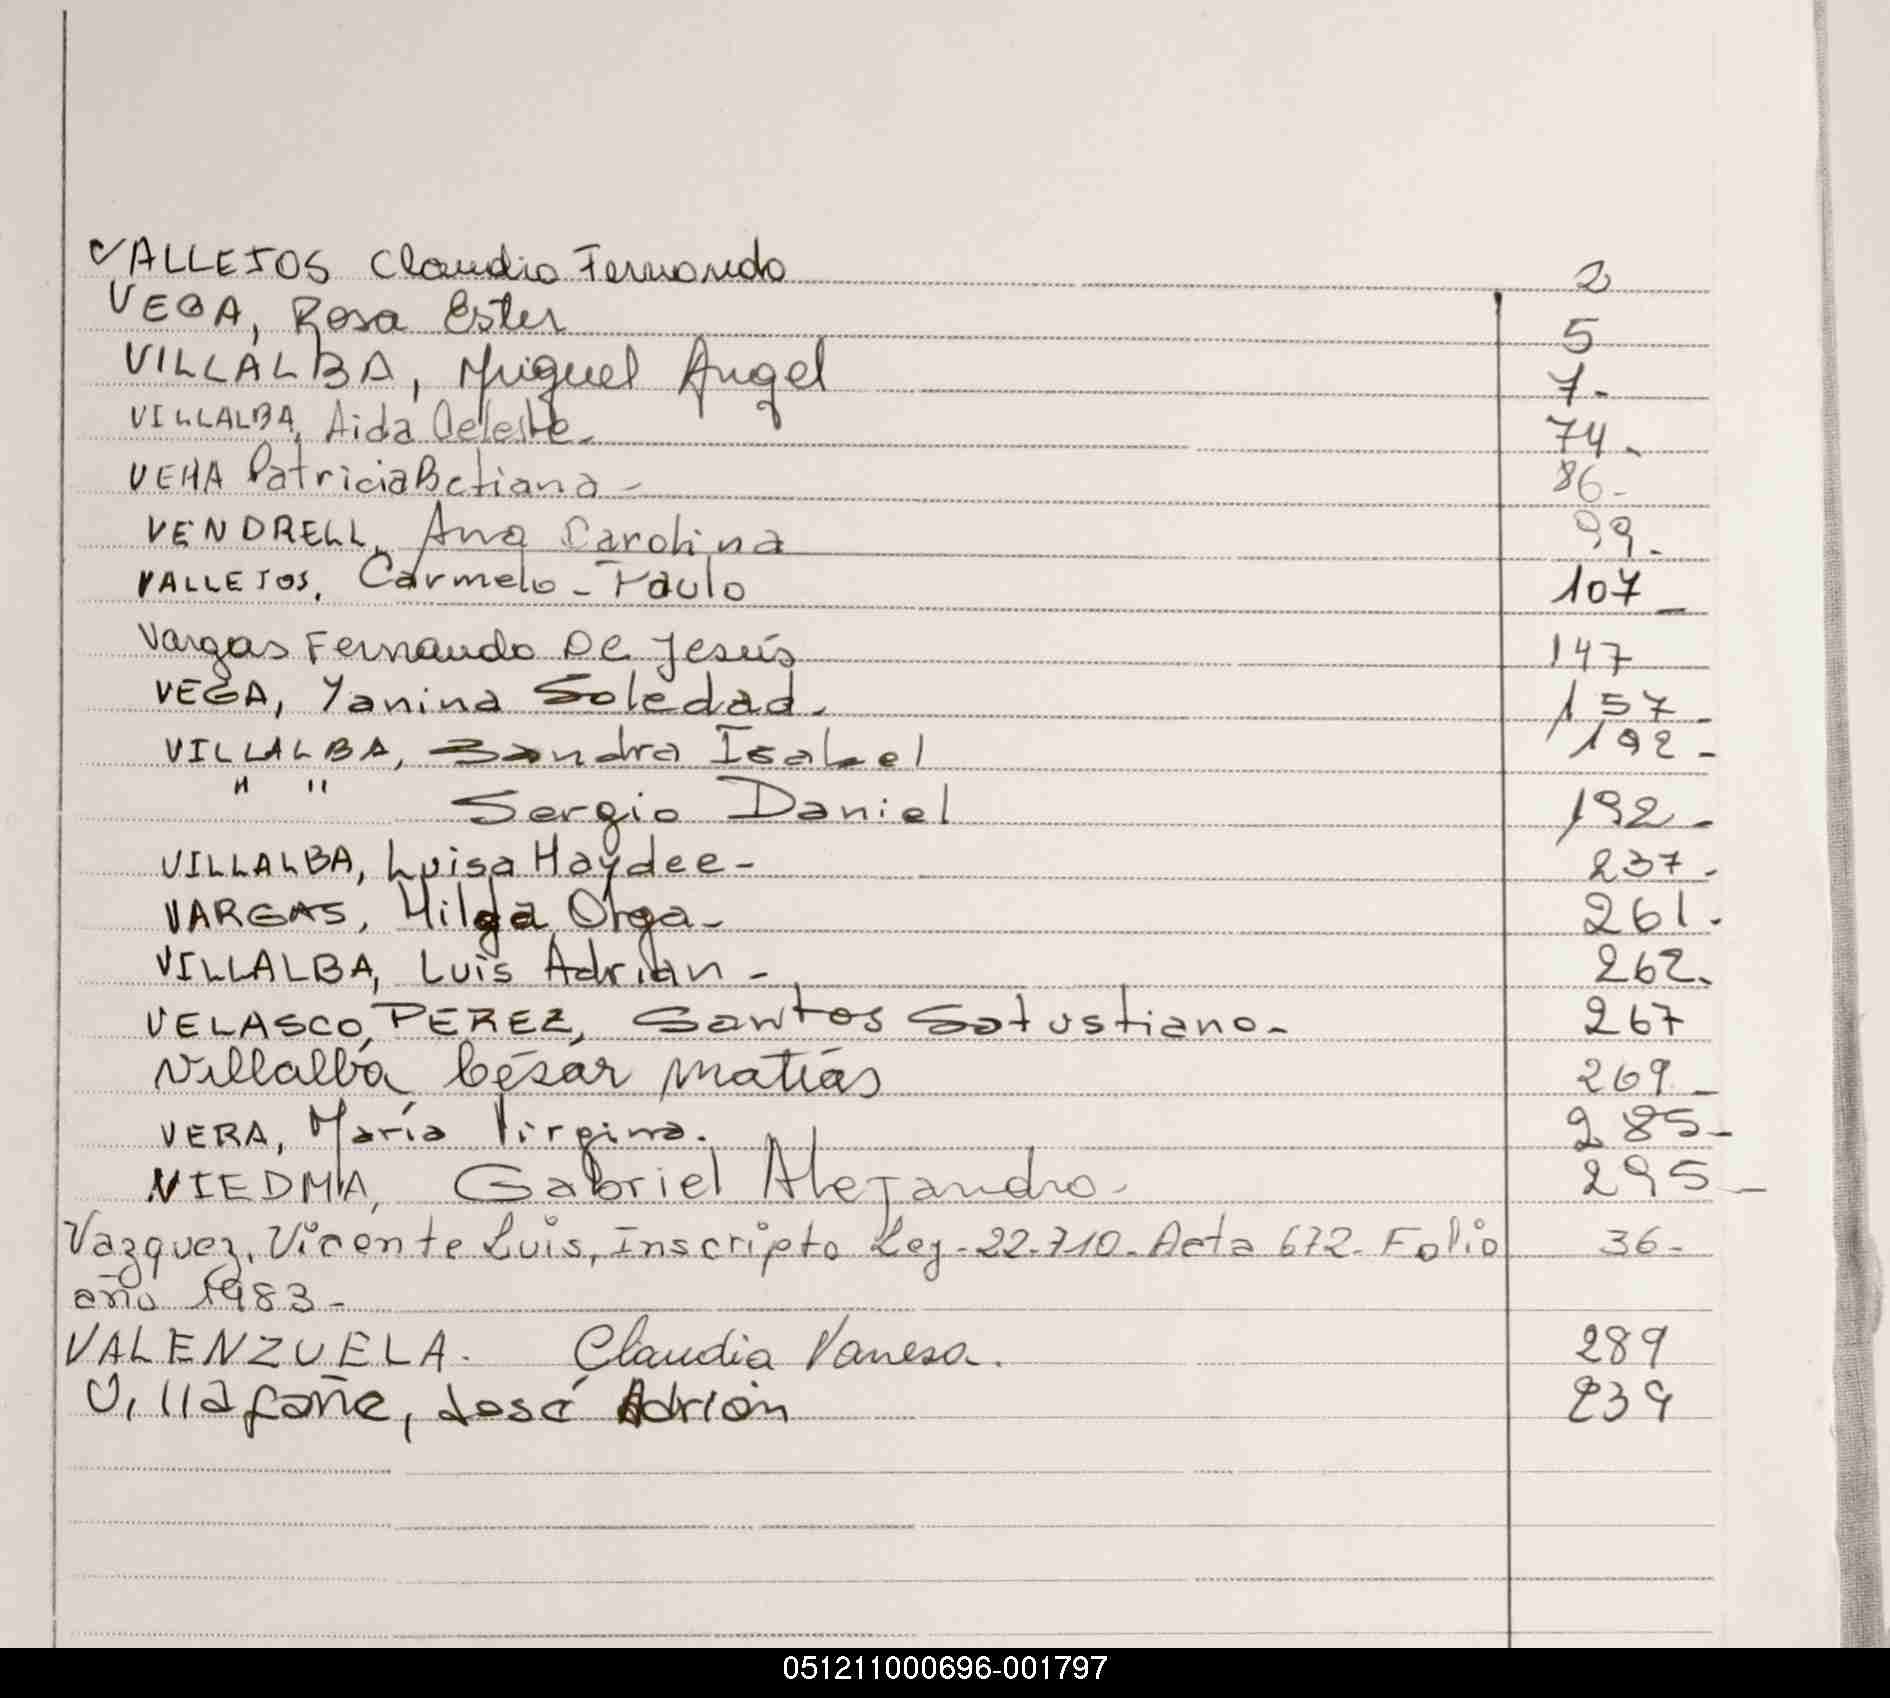 VALLEJOS Claudio Fernando 2
VEGA, Rosa Ester 5
VILLALBA, Miguel Angel 7-
VILLALBA, Aida Celeste- 74-
VEHA Patricia Betiana- 86-
VENDRELL, Ana Carolina 99-
VALLEJOS, Carmelo-Paulo 107-
Vargas Fernando De Jesús 147
VEGA, Yanina Soledad- 157-
VILLALBA, Sandra Isabel 192-
" " Sergio Daniel 192-
VILLALBA, Luisa Haydee- 237-
VARGAS, Hilda Olga- 261-
VILLALBA, Luis Adrian- 262-
VELASCO, PEREZ, Santos Satustiano- 267
Villalba César Matías 269-
VERA, María Virgina. 285-
VIEDMA, Gabriel Alejandro- 295-
Vazquez, Vicente Luis, Inscripto Ley-22.710-Acta 672-Folio 36-
año 1983-
VALENZUELA. Claudia Vanesa. 289
Villafañe, José Adrián 239
051211000696-001797